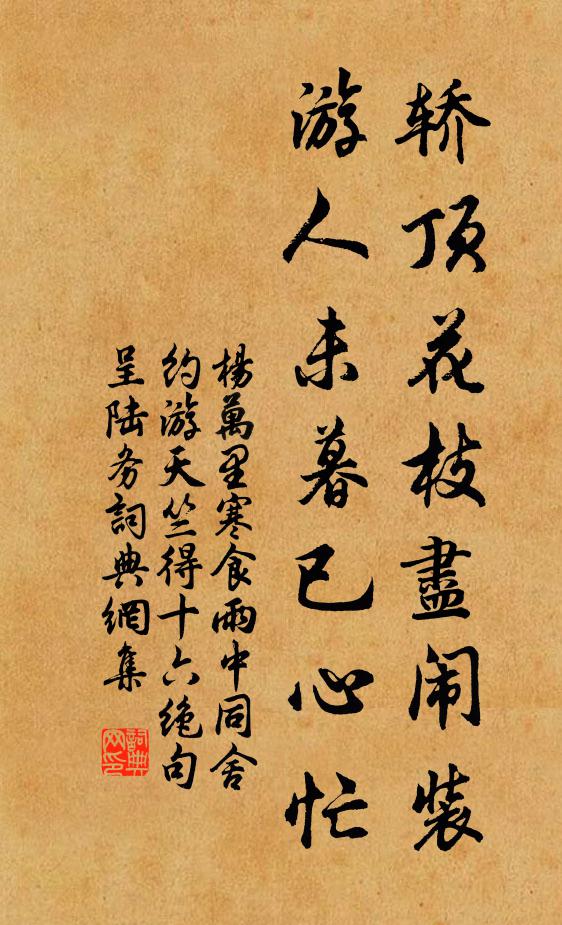 轿顶花枝盡闹裝
游人未暮已心忙
楊萬里寒食雨中同舍
约游天竺得十六绝句
呈陆务詞典網集
詞典
网印